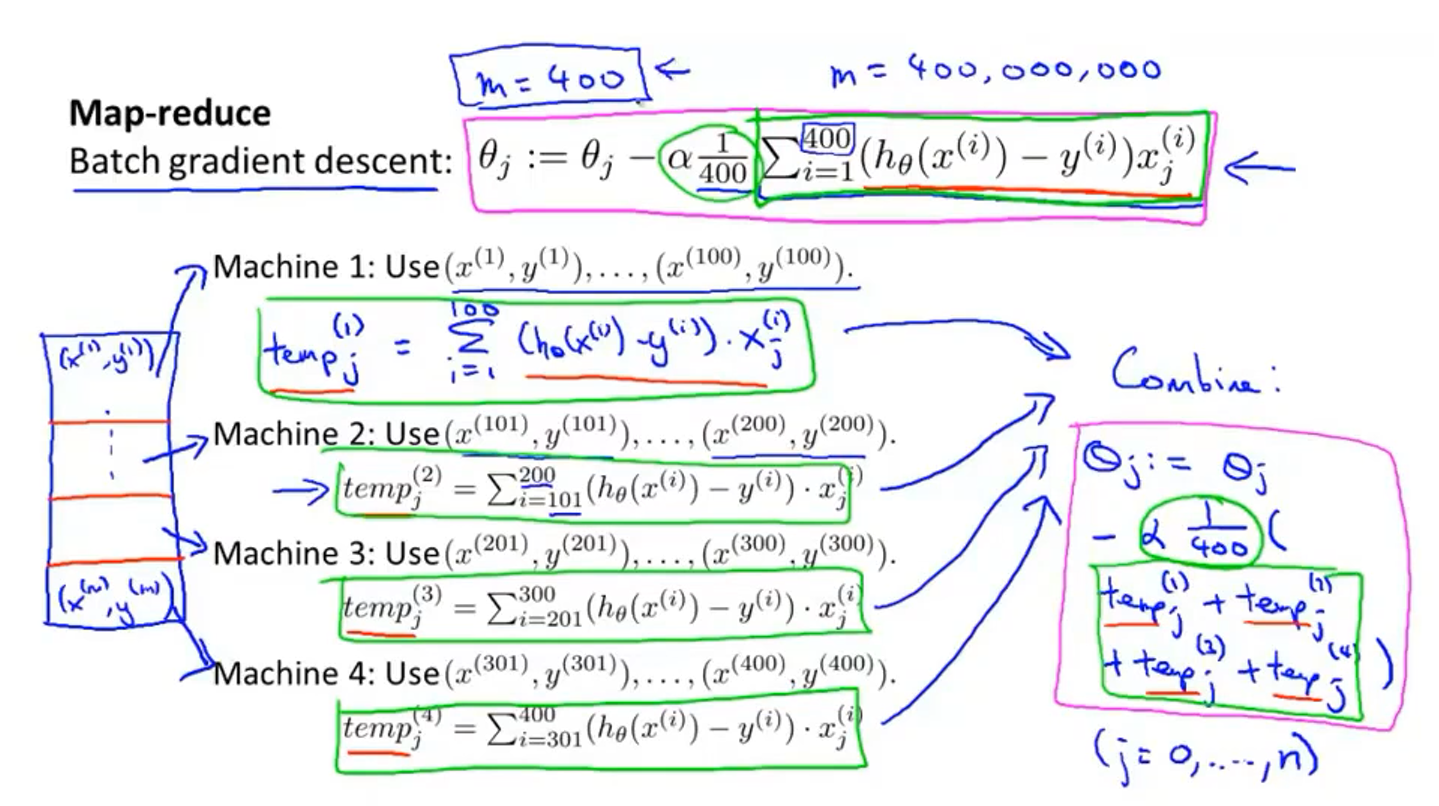 m = 400 ← m = 400,000,000
Map-reduce
Batch gradient descent: θ_j := θ_j − α (1/400) ∑_{i=1}^{400} (h_θ(x^{(i)}) − y^{(i)}) x_j^{(i)} ←
Machine 1: Use (x^{(1)}, y^{(1)}), …, (x^{(100)}, y^{(100)}).
temp_j^{(1)} = ∑_{i=1}^{100} (h_θ(x^{(i)}) − y^{(i)}) · x_j^{(i)}
(x^{(1)}, y^{(1)})
Machine 2: Use (x^{(101)}, y^{(101)}), …, (x^{(200)}, y^{(200)}).
→ temp_j^{(2)} = ∑_{i=101}^{200} (h_θ(x^{(i)}) − y^{(i)}) · x_j^{(i)}
Machine 3: Use (x^{(201)}, y^{(201)}), …, (x^{(300)}, y^{(300)}).
temp_j^{(3)} = ∑_{i=201}^{300} (h_θ(x^{(i)}) − y^{(i)}) · x_j^{(i)}
(x^{(m)}, y^{(m)})
Machine 4: Use (x^{(301)}, y^{(301)}), …, (x^{(400)}, y^{(400)}).
temp_j^{(4)} = ∑_{i=301}^{400} (h_θ(x^{(i)}) − y^{(i)}) · x_j^{(i)}
Combine:
θ_j := θ_j
− α (1/400) (
temp_j^{(1)} + temp_j^{(2)}
+ temp_j^{(3)} + temp_j^{(4)} )
(j = 0, ...., n)